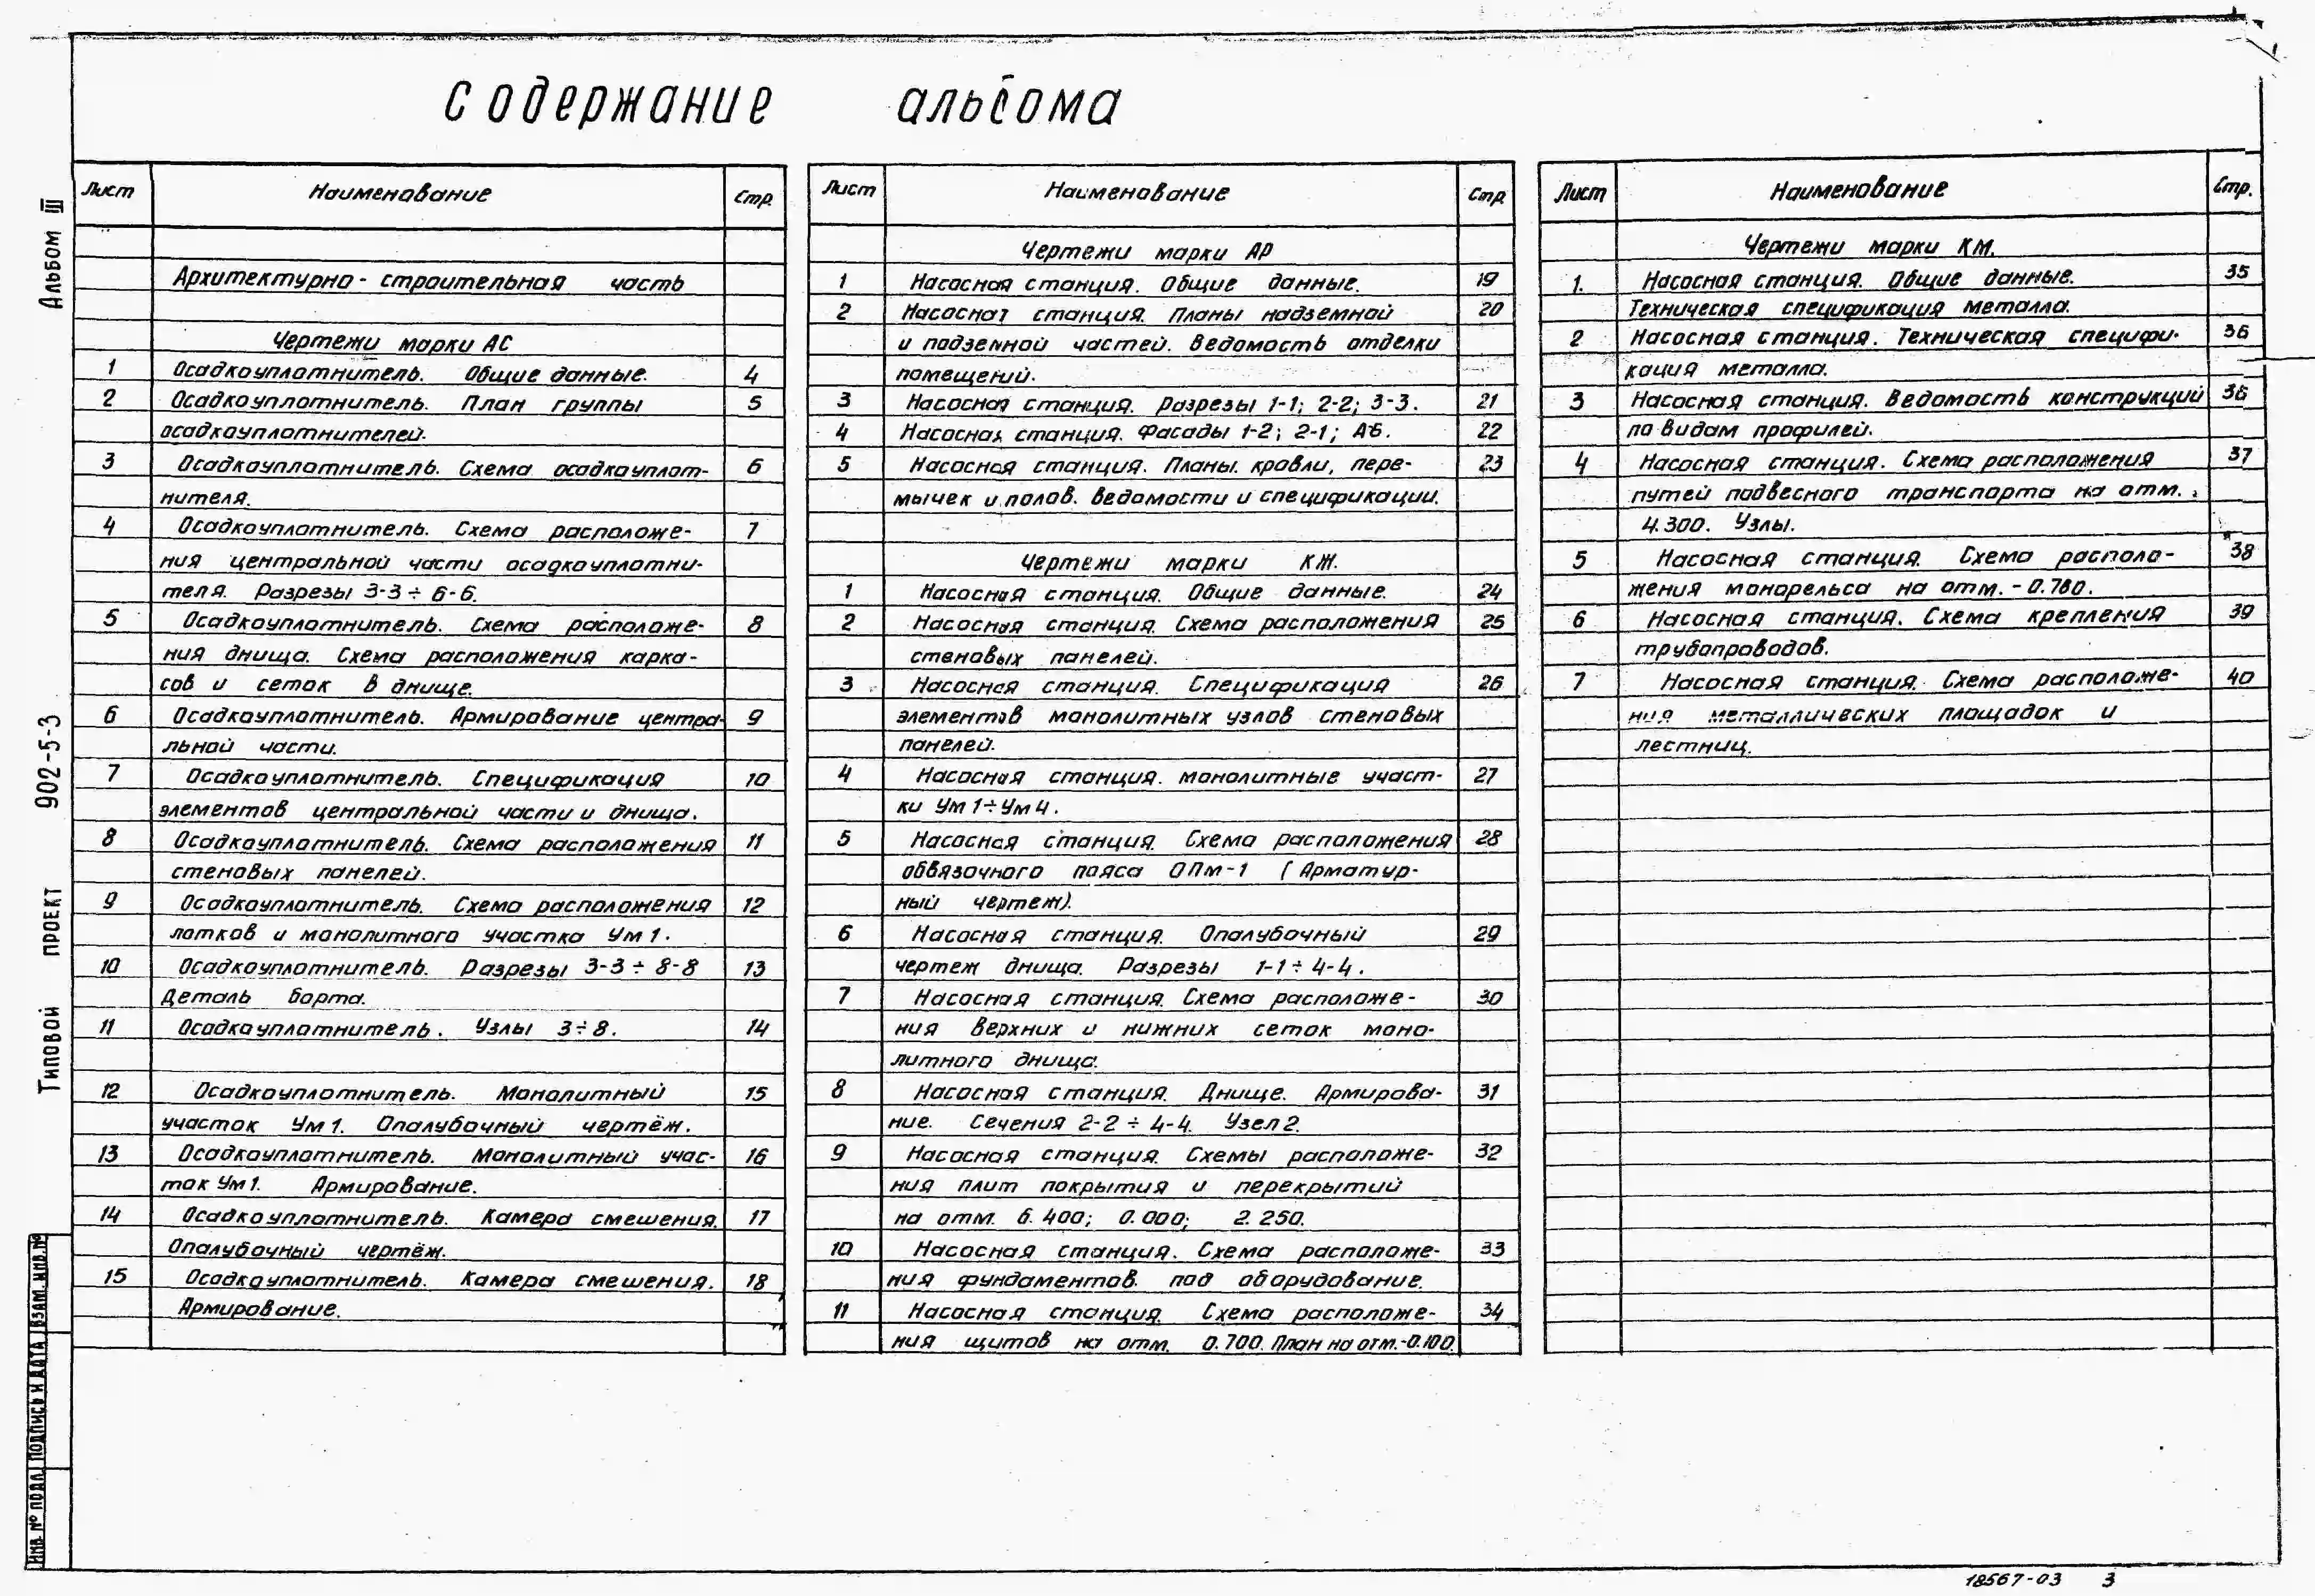 Содержание альбома
Альбом III
Типовой проект 902-5-3
Лист Наименование Стр.
Архитектурно-строительная часть
Чертежи марки АС
1 Осадкоуплотнитель. Общие данные. 4
2 Осадкоуплотнитель. План группы 5
осадкоуплотнителей.
3 Осадкоуплотнитель. Схема осадкоуплот- 6
нителя.
4 Осадкоуплотнитель. Схема расположе- 7
ния центральной части осадкоуплотни-
теля. Разрезы 3-3 ÷ 6-6.
5 Осадкоуплотнитель. Схема расположе- 8
ния днища. Схема расположения карка-
сов и сеток в днище.
6 Осадкоуплотнитель. Армирование центра- 9
льной части.
7 Осадкоуплотнитель. Спецификация 10
элементов центральной части и днища.
8 Осадкоуплотнитель. Схема расположения 11
стеновых панелей.
9 Осадкоуплотнитель. Схема расположения 12
лотков и монолитного участка Ум 1.
10 Осадкоуплотнитель. Разрезы 3-3 ÷ 8-8 13
Деталь борта.
11 Осадкоуплотнитель. Узлы 3÷8. 14
12 Осадкоуплотнитель. Монолитный 15
участок Ум 1. Опалубочный чертёж.
13 Осадкоуплотнитель. Монолитный учас- 16
ток Ум 1. Армирование.
14 Осадкоуплотнитель. Камера смешения. 17
Опалубочный чертёж.
15 Осадкоуплотнитель. Камера смешения. 18
Армирование.
Лист Наименование Стр
Чертежи марки АР
1 Насосная станция. Общие данные. 19
2 Насосная станция. Планы надземной 20
и подземной частей. Ведомость отделки
помещений.
3 Насосная станция. Разрезы 1-1; 2-2; 3-3. 21
4 Насосная станция. Фасады 1-2; 2-1; А-Б. 22
5 Насосная станция. Планы. кровли, пере- 23
мычек и полов. Ведомости и спецификации.
Чертежи марки КЖ.
1 Насосная станция. Общие данные. 24
2 Насосная станция. Схема расположения 25
стеновых панелей.
3 Насосная станция. Спецификация 26
элементов монолитных узлов стеновых
панелей.
4 Насосная станция. монолитные участ- 27
ки Ум 1÷Ум 4.
5 Насосная станция. Схема расположения 28
обвязочного пояса ОПм-1 (Арматур-
ный чертеж).
6 Насосная станция. Опалубочный 29
чертеж днища. Разрезы 1-1 ÷ 4-4.
7 Насосная станция. Схема расположе- 30
ния верхних и нижних сеток моно-
литного днища.
8 Насосная станция. Днище. Армирова- 31
ние. Сечения 2-2 ÷ 4-4. Узел 2.
9 Насосная станция. Схемы расположе- 32
ния плит покрытия и перекрытий
на отм. 6.400; 0.000; 2.250.
10 Насосная станция. Схема расположе- 33
ния фундаментов под оборудование.
11 Насосная станция. Схема расположе- 34
ния щитов на отм. 0.700. План на отм.-0.100.
Лист Наименование Стр.
Чертежи марки КМ.
1. Насосная станция. Общие данные. 35
Техническая спецификация металла.
2 Насосная станция. Техническая специфи- 36
кация металла.
3 Насосная станция. Ведомость конструкций 36
по видам профилей.
4 Насосная станция. Схема расположения 37
путей подвесного транспорта на отм.
4.300. Узлы.
5 Насосная станция. Схема располо- 38
жения монорельса на отм. -0.780.
6 Насосная станция. Схема крепления 39
трубопроводов.
7 Насосная станция. Схема расположе- 40
ния металлических площадок и
лестниц.
Инв. № подл. Подпись и дата Взам. инв. №
18567-03 3